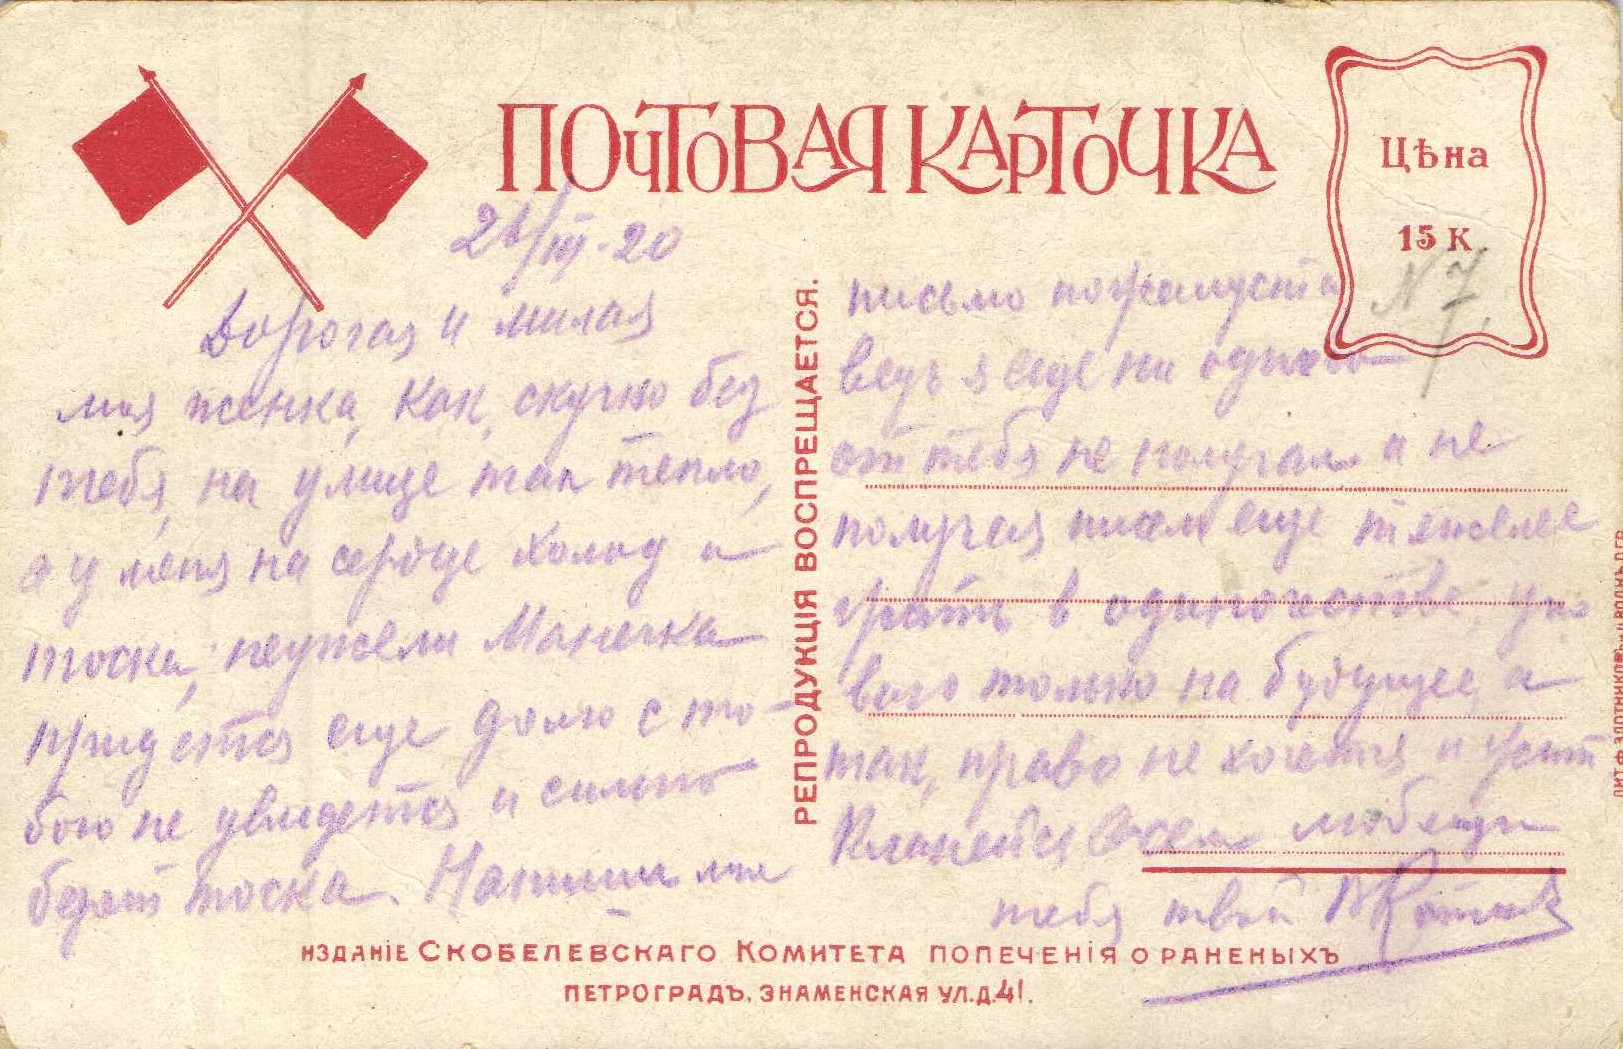 ПОЧТОВАЯ КАРТОЧКА
Цѣна
15 К
N 7.
21/III-20
Дорогая и милая
моя женка, как скучно без
тебя, на улице так тепло,
а у меня на сердце холод и
тоска, неужели Манечка
придется еще долго с то-
бою не увидется и сильно
берет тоска. Напиши мне
письмо пожалуста
ведь я еще ни одного
от тебя не получал а не
получая писем еще тяжелее
в одиночестве,
только на будущее, а
так, право не хочется и
Кланейся Всем любящи
тебя твой
РЕПРОДУКЦІЯ ВОСПРЕЩАЕТСЯ.
ИЗДАНІЕ СКОБЕЛЕВСКАГО КОМИТЕТА ПОПЕЧЕНІЯ О РАНЕНЫХЪ
ПЕТРОГРАДЪ, ЗНАМЕНСКАЯ УЛ. Д. 41.